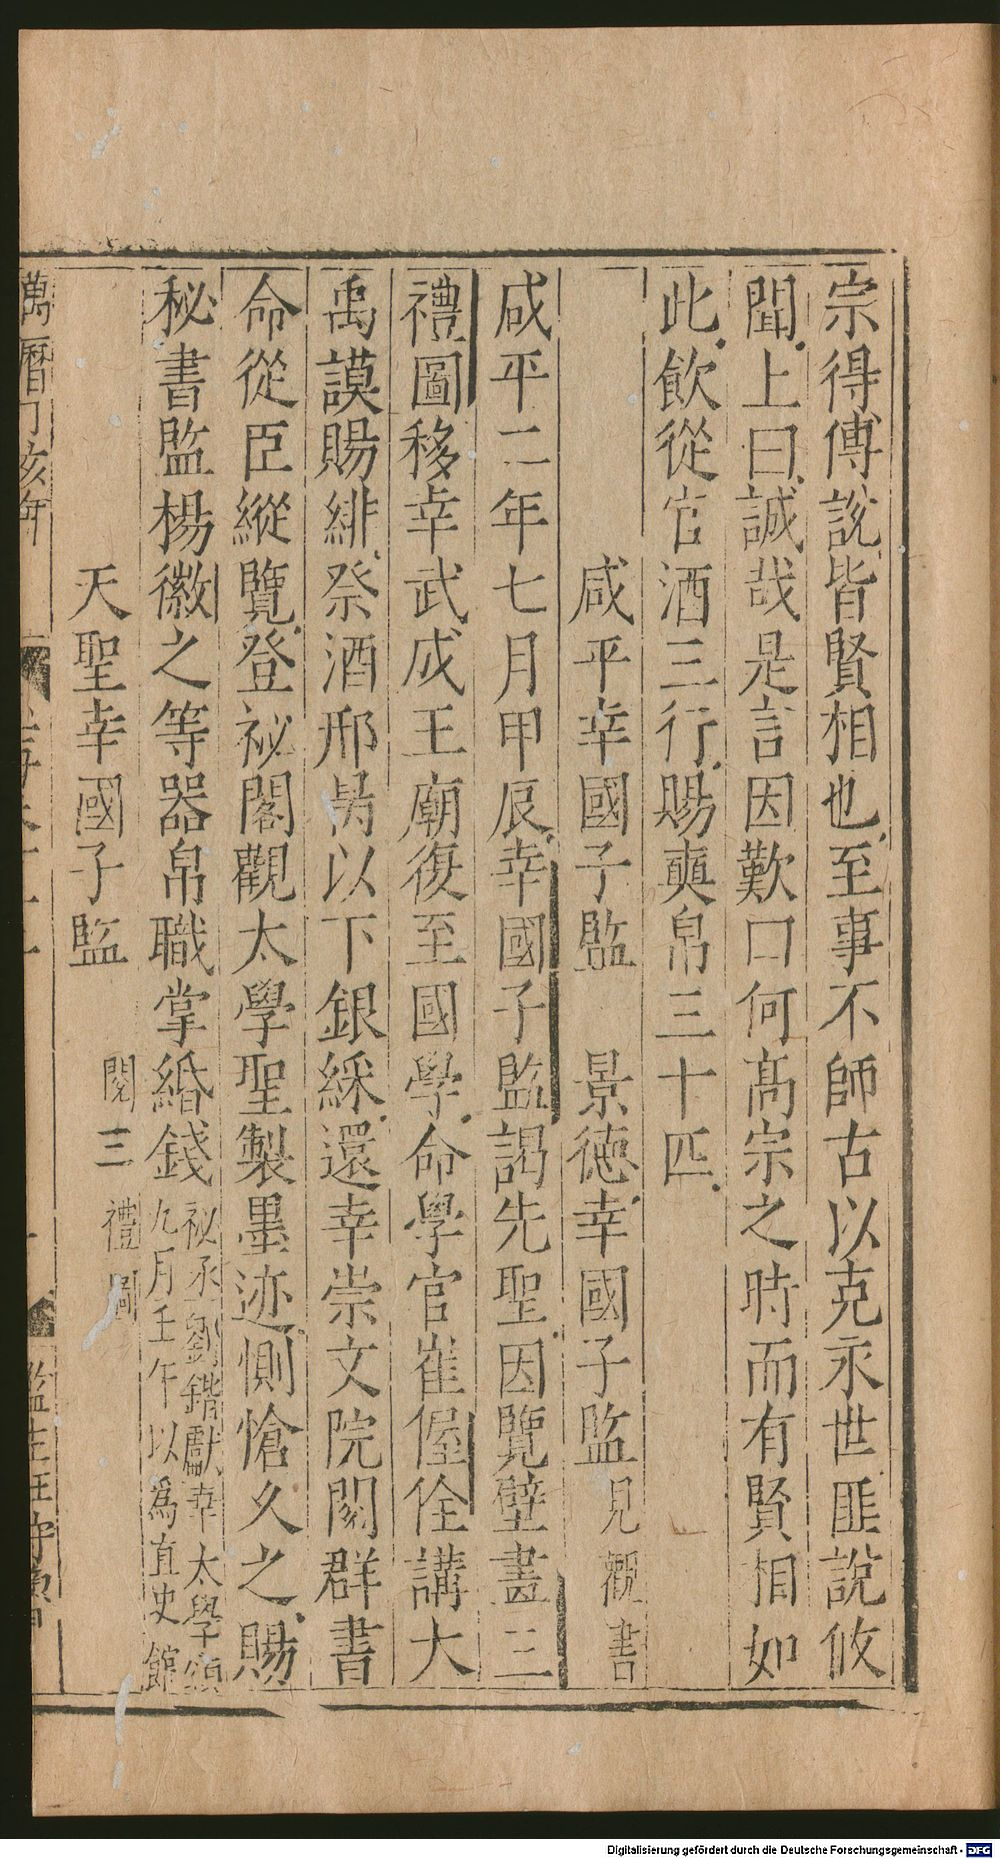 宗得傅說皆賢相也至事不師古以克永世匪說攸
聞上曰誠哉是言因歎曰何髙宗之時而有賢相如
此飲從官酒三行賜奭帛三十匹
咸平幸國子監 景徳幸國子監見觀書
咸平二年七月甲辰幸國子監謁先聖因覽壁畫三
禮圖移幸武成王廟復至國學命學官崔偓佺講大
禹謨賜緋祭酒邢昺以下銀綵還幸崇文院閱群書
命從臣縱覽登祕閣觀太學聖製墨迹惻愴久之賜
秘書監楊徽之等器帛職掌緡錢祕丞劉鍇獻幸太學頌
九月壬午以爲直史館
天聖幸國子監 閱三禮圖
萬曆丁亥年
監生
Digitalisierung gefördert durch die Deutsche Forschungsgemeinschaft - DFG